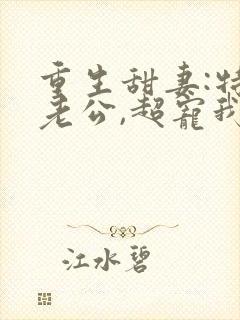 重生甜妻:特
老公,超宠我
江水碧